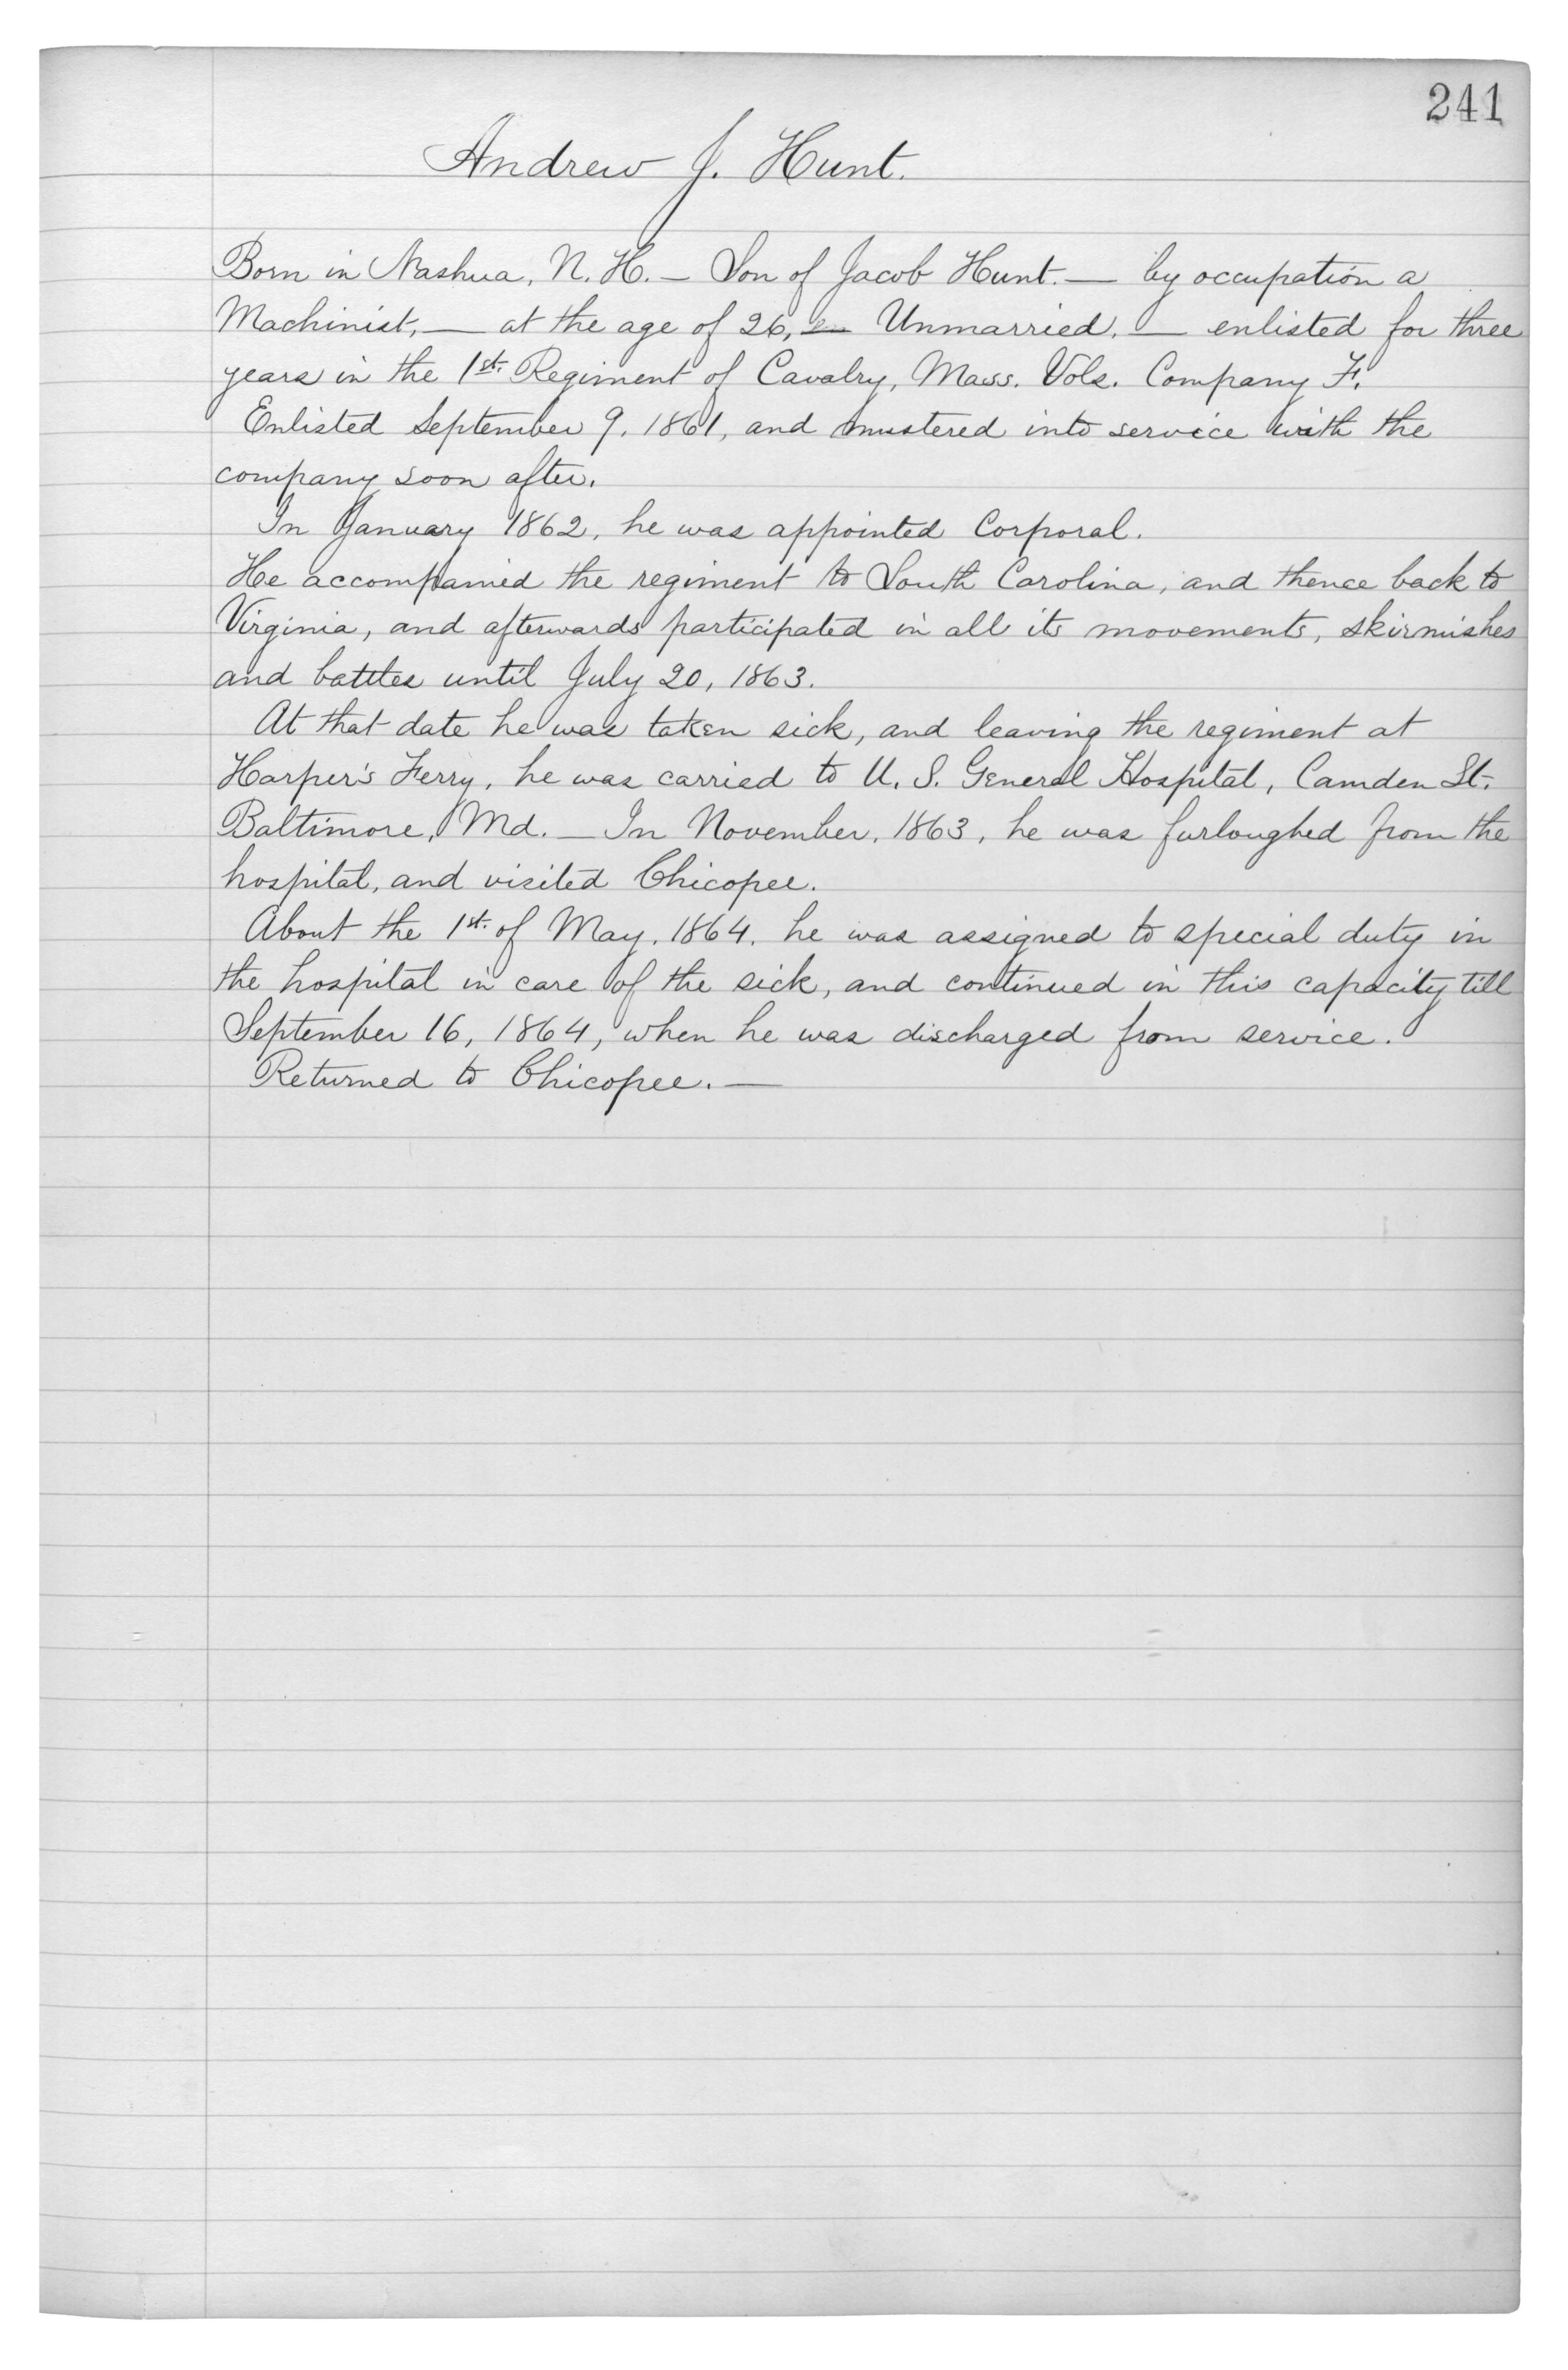 241
Andrew J. Hunt.
Born in Nashua, N. H. — Son of Jacob Hunt. — by occupation a
Machinist, — at the age of 26, — Unmarried. — enlisted for three
years in the 1st. Regiment of Cavalry, Mass. Vols. Company F.
Enlisted September 9, 1861, and mustered into service with the
company soon after.
In January 1862, he was appointed Corporal.
He accompanied the regiment to South Carolina, and thence back to
Virginia, and afterwards participated in all its movements, skirmishes
and battles until July 20, 1863.
At that date he was taken sick, and leaving the regiment at
Harper's Ferry, he was carried to U. S. General Hospital, Camden St.
Baltimore, Md. — In November, 1863, he was furloughed from the
hospital, and visited Chicopee.
About the 1st. of May, 1864, he was assigned to special duty in
the hospital in care of the sick, and continued in this capacity till
September 16, 1864, when he was discharged from service.
Returned to Chicopee. —